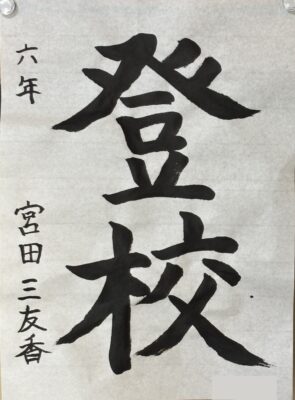 登校
六年
宮田三友香